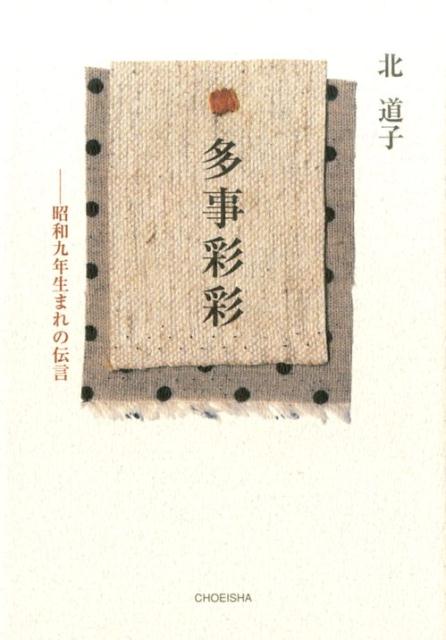 北 道子
多事彩彩
――昭和九年生まれの伝言
CHOEISHA